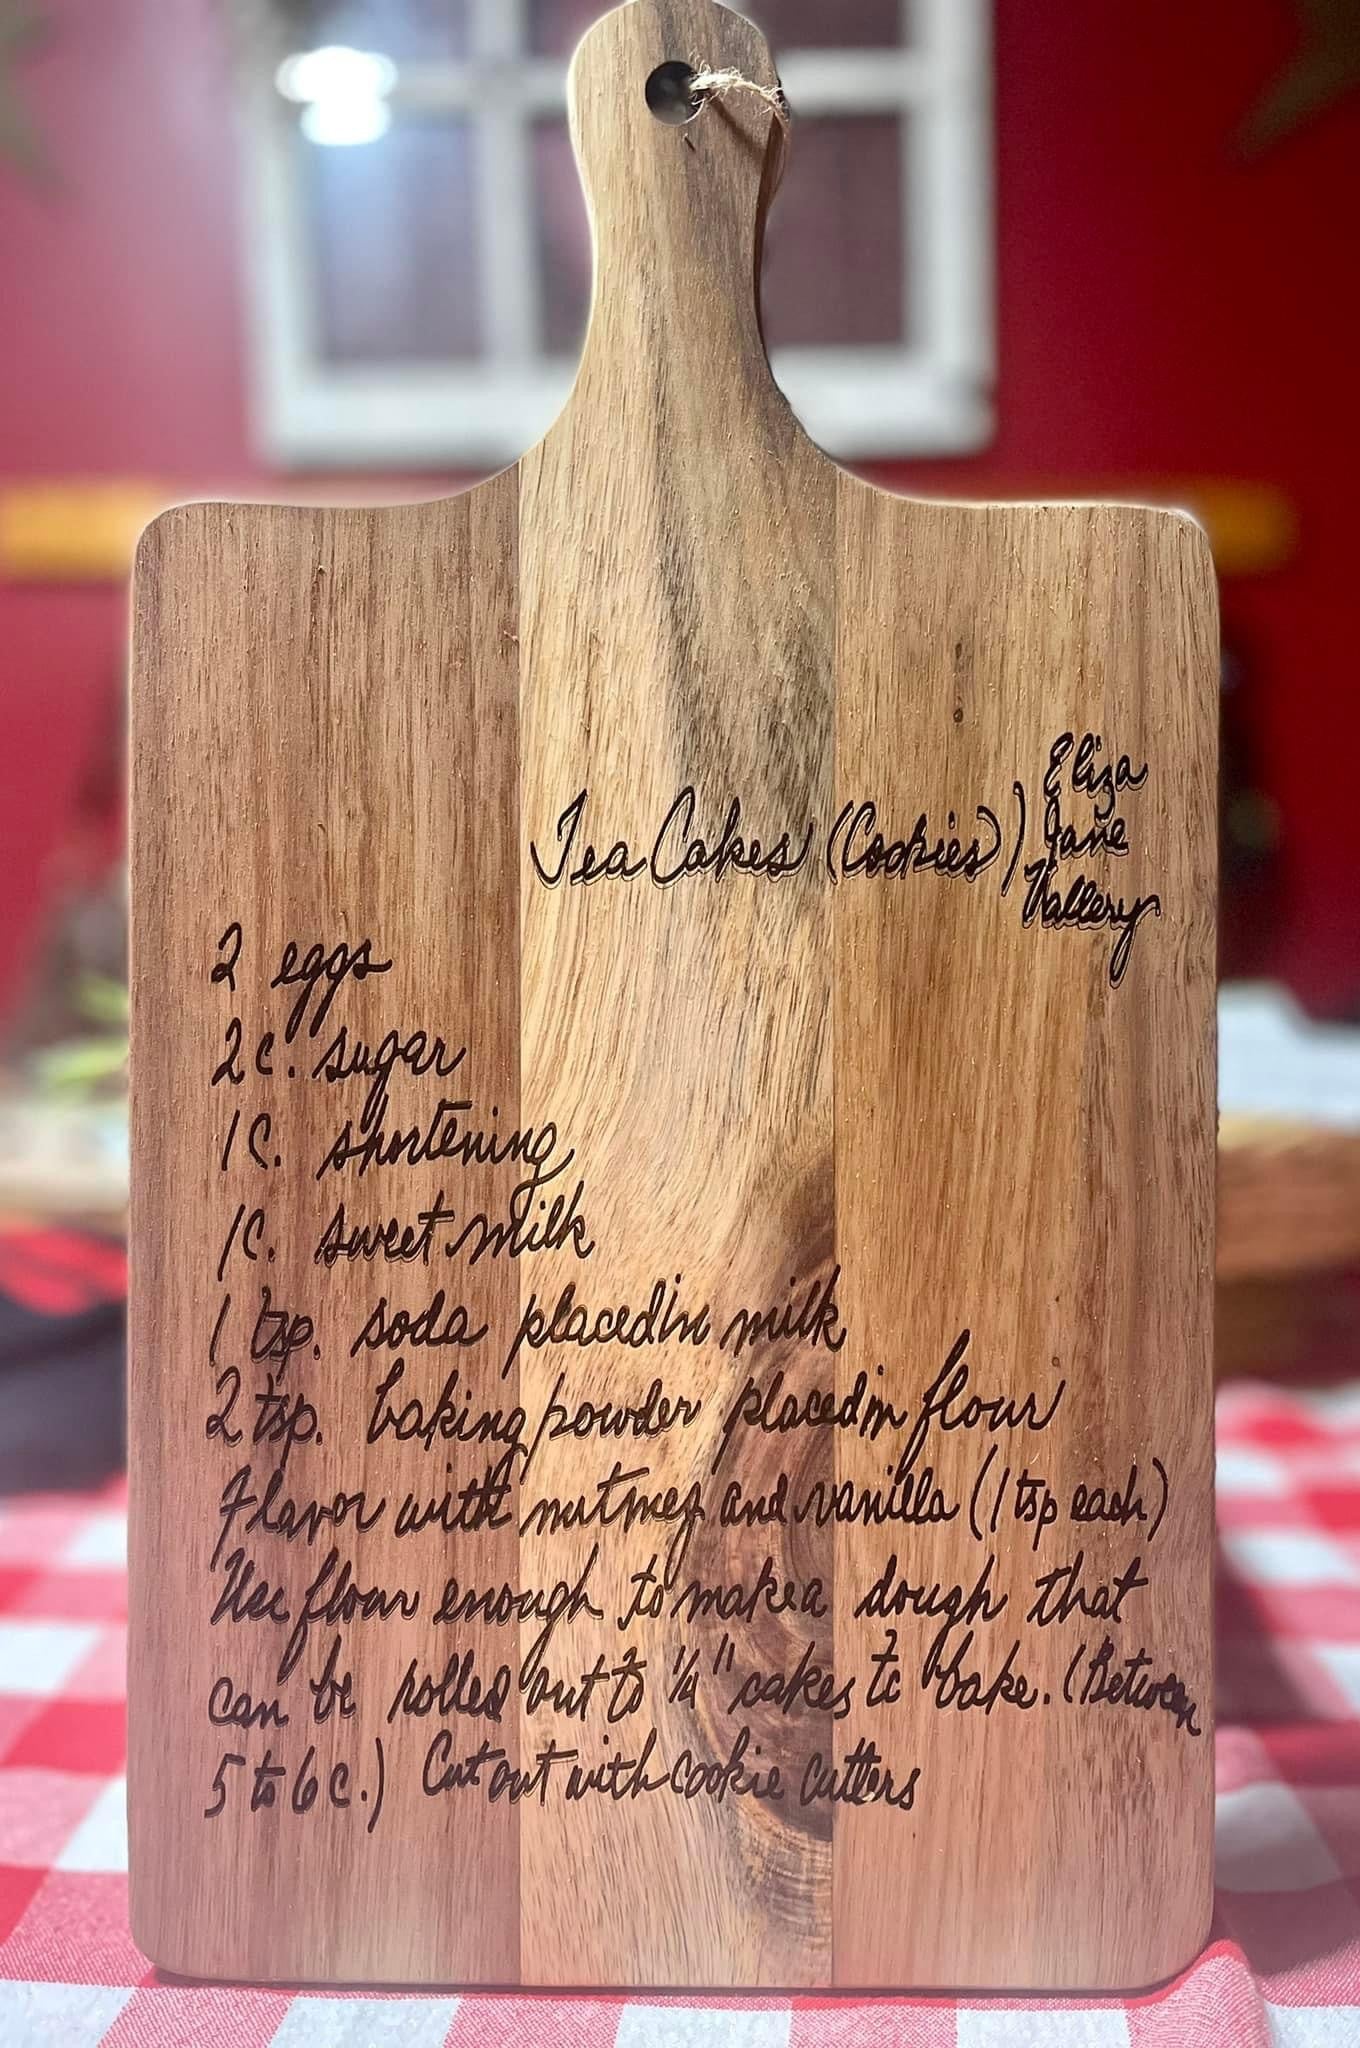 Tea Cakes (Cookies)
Eliza
Jane
Vallery
2 eggs
2 c. sugar
1 C. shortening
1 C. sweet milk
1 tsp. soda placed in milk
2 tsp. baking powder placed in flour
Flavor with nutmeg and vanilla (1 tsp each)
Use flour enough to make a dough that
can be rolled out to 1/4" cakes to bake. (Between
5 to 6 c.) Cut out with cookie cutters